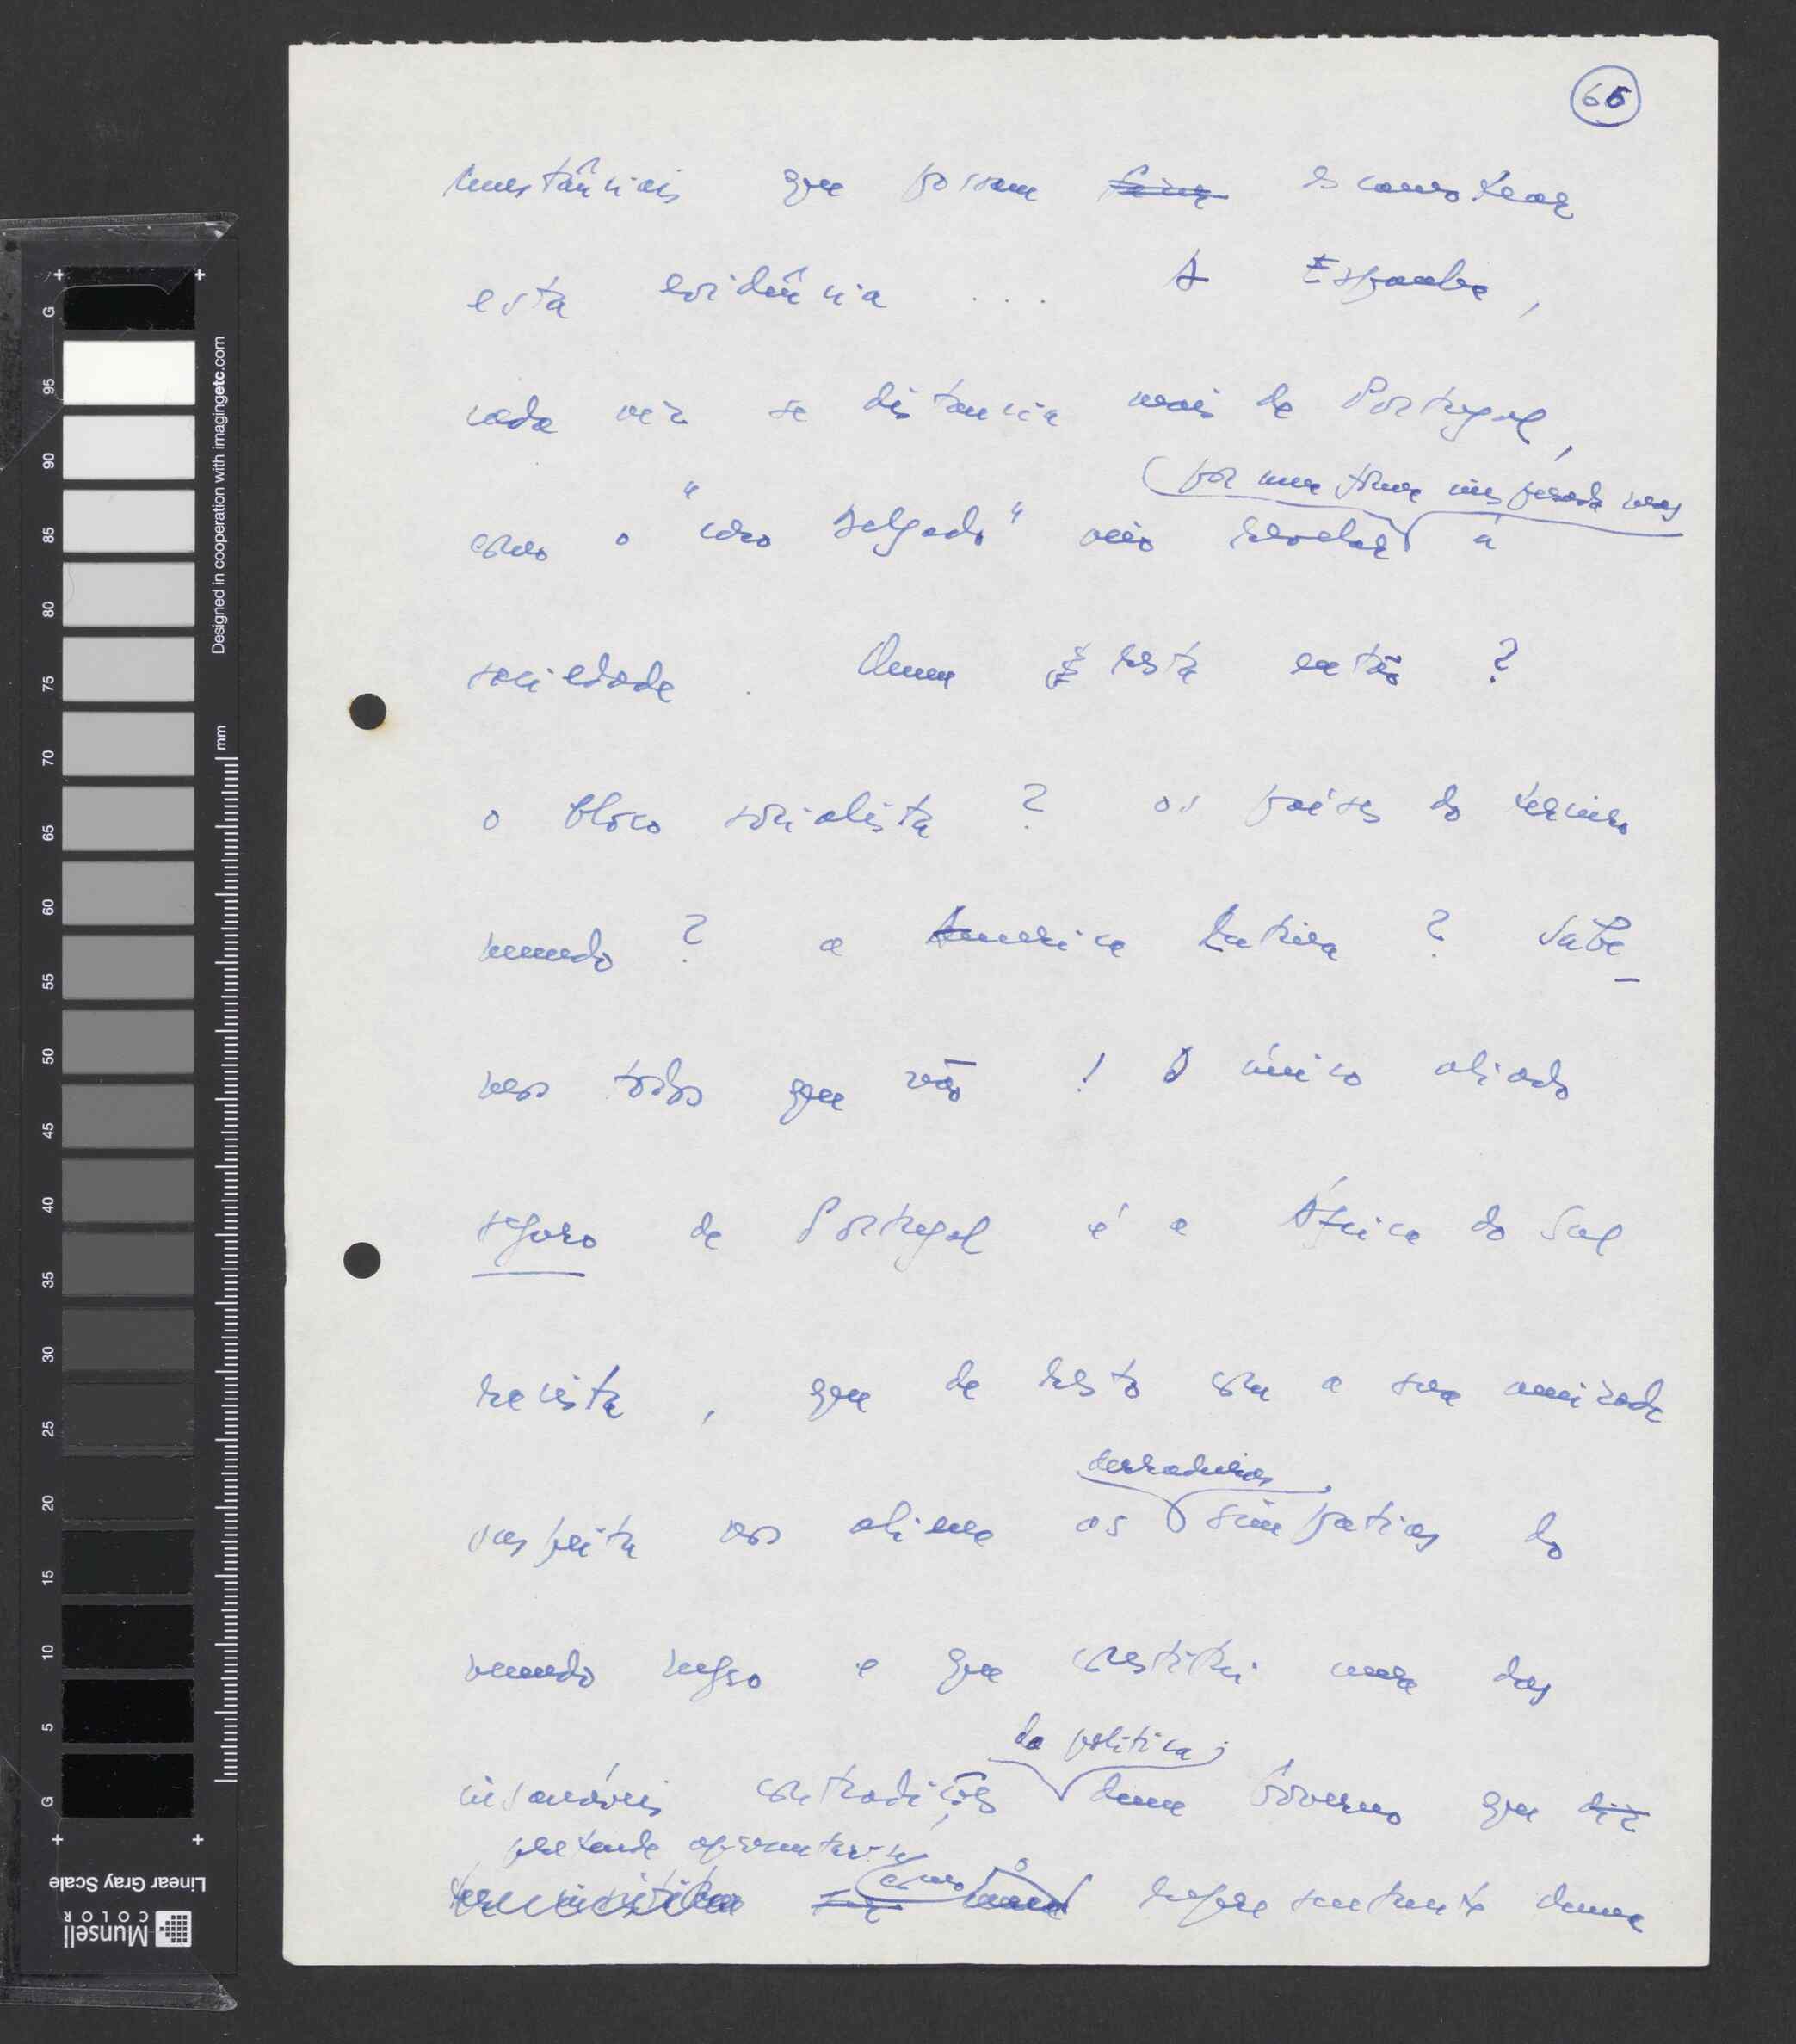 66
cunstânciais que possam escamotear
esta evidência ... A Espanha,
cada vez se distancia mais de Portugal,
(por uma forma inesperada mas
como o "caso Delgado" veio revelar à
sociedade. Quem resta então?
o bloco socialista? os países do terceiro
mundo? a America Latina? Sabe-
mos todos que não! O único aliado
seguro de Portugal é a África do Sul
racista, que de resto com a sua amizade
derradeiras
suspeita nos aliena as simpatias do
mundo negro e que constitui uma das
da política
insanáveis contradições dum Governo que diz
pretende apresentar-se
como o representante duma
Designed in cooperation with imagingetc.com
mm
G
95
90
85
80
75
70
65
60
55
50
45
40
35
30
25
20
15
10
5
G
Linear Gray Scale
Munsell
COLOR